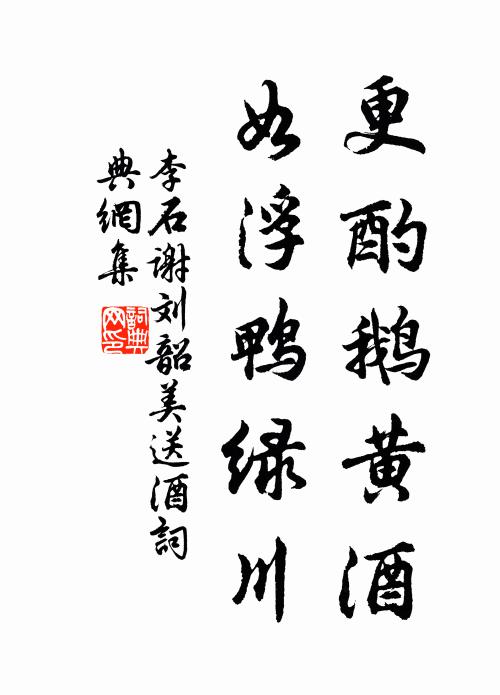 更酌鹅黄酒
如浮鸭绿川
李石谢刘韶美送酒詞
典網集
詞典网印